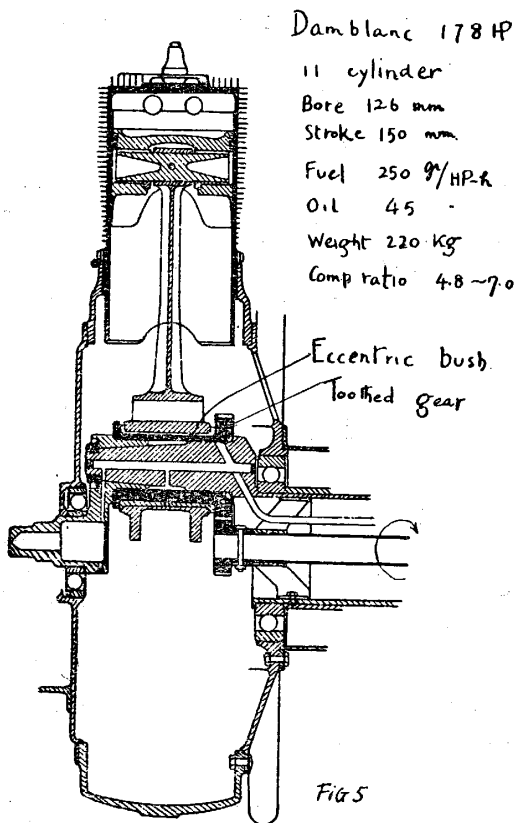 Damblanc 178 HP
11 cylinder
Bore 126 mm
Stroke 150 mm.
Fuel 250 gr/HP-h
Oil 45 -
Weight 220 Kg
Comp ratio 4.8 ~ 7.0
Eccentric bush
Toothed gear
FIG 5